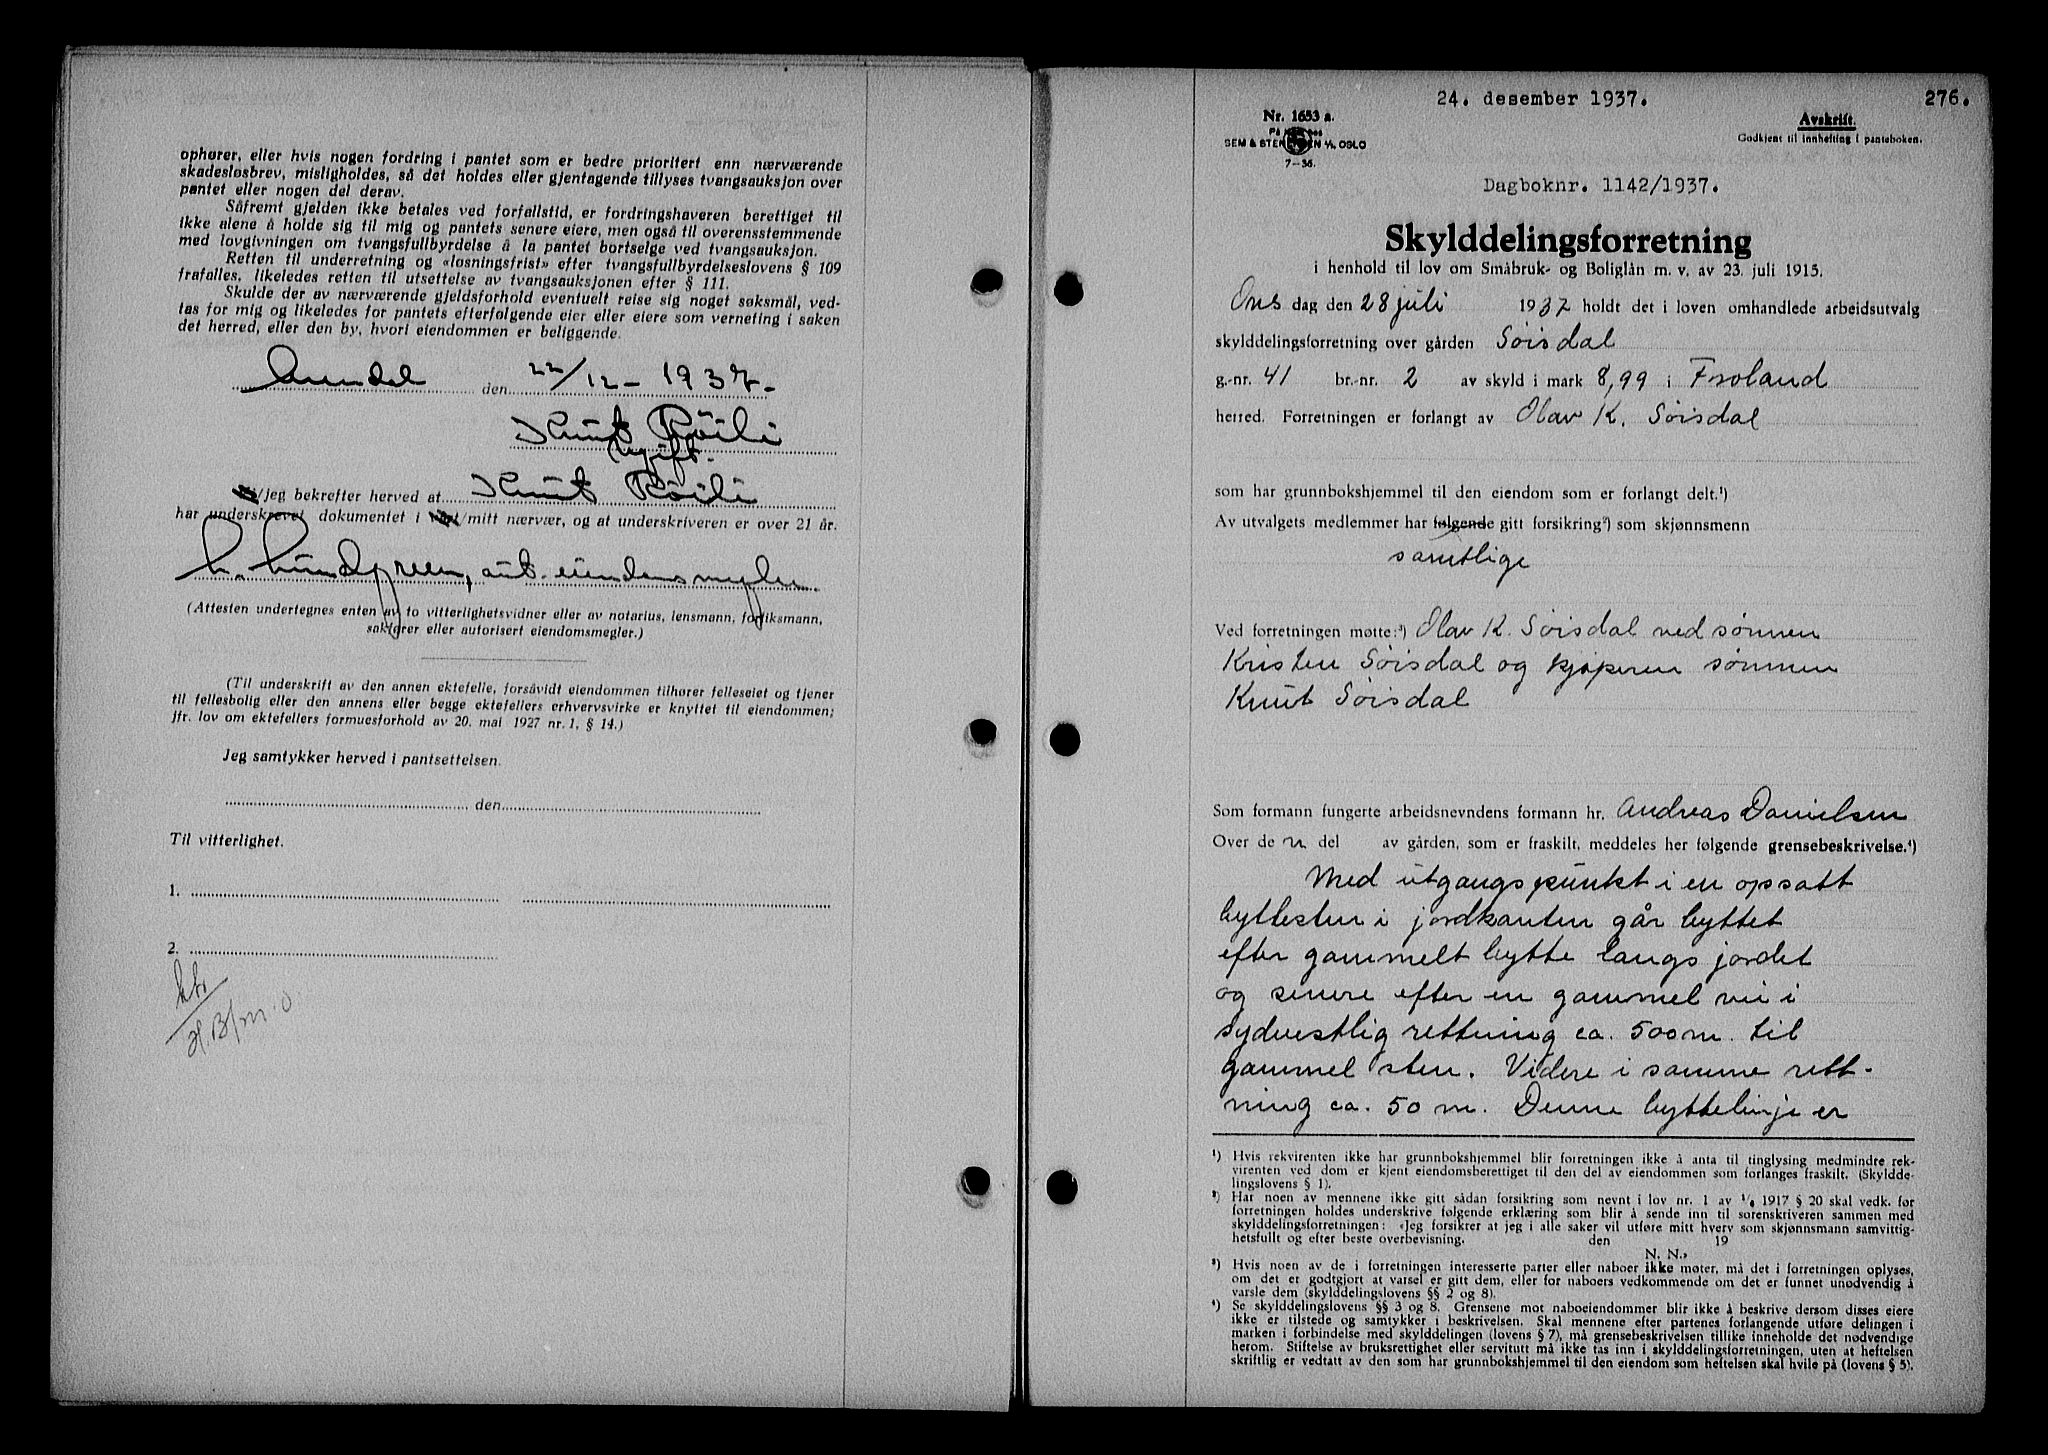 ophører, eller hvis nogen fordring i pantet som er bedre prioritert enn nærværende
skadesløsbrev, misligholdes, så det holdes eller gjentagende tillyses tvangsauksjon over
pantet eller nogen del derav.
Såfremt gjelden ikke betales ved forfallstid, er fordringshaveren berettiget til
ikke alene å holde sig til mig og pantets senere eiere, men også til overensstemmende
med lovgivningen om tvangsfullbyrdelse å la pantet bortselge ved tvangsauksjon.
Retten til underretning og «løsningsfrist» efter tvangsfullbyrdelseslovens § 109
frafalles, likeledes retten til utsettelse av tvangsauksjonen efter § 111.
Skulde der av nærværende gjeldsforhold eventuelt reise sig noget søksmål, ved-
tas for mig og likeledes for pantets efterfølgende eier eller eiere som verneting i saken
det herred, eller den by, hvori eiendommen er beliggende.
Arendal den 22/12 - 1937 -
Knut Røili
Ugift.
/jeg bekrefter herved at Knut Røili
har underskrevet dokumentet i vårt/mitt nærvær, og at underskriveren er over 21 år.
h. Lundgreen, aut. eiendensmegler
(Attesten undertegnes enten av to vitterlighetsvidner eller av notarius, lensmann, forliksmann,
sakfører eller autorisert eiendomsmegler.)
(Til underskrift av den annen ektefelle, forsåvidt eiendommen tilhører felleseiet og tjener
til fellesbolig eller den annens eller begge ektefellers erhvervsvirke er knyttet til eiendommen;
jfr. lov om ektefellers formuesforhold av 20. mai 1927 nr. 1, § 14.)
Jeg samtykker herved i pantsettelsen.
den
Til vitterlighet.
1.
2.
H.B/M.O.
24. desember 1937. 276.
Nr. 1653 a.
SEM & STENERSEN A/S, OSLO
7-36.
Avskrift.
Godkjent til innhefting i panteboken.
Dagboknr. 1142/1937.
Skylddelingsforretning
i henhold til lov om Småbruk- og Boliglån m. v. av 23. juli 1915.
Ons dag den 28 juli 1937 holdt det i loven omhandlede arbeidsutvalg
skylddelingsforretning over gården Søisdal
g.-nr. 41 br.-nr. 2 av skyld i mark 8,99 i Froland
herred. Forretningen er forlangt av Olav K. Søisdal
som har grunnbokshjemmel til den eiendom som er forlangt delt.¹)
Av utvalgets medlemmer har følgende gitt forsikring²) som skjønnsmenn
samtlige
Ved forretningen møtte:³) Olav K. Søisdal ved sønnen
Kristen Søisdal og kjøperen sønnen
Knut Søisdal
Som formann fungerte arbeidsnevndens formann hr. Andreas Danielsen
Over de n del av gården, som er fraskilt, meddeles her følgende grensebeskrivelse.⁴)
Med utgangspunkt i en opsatt
byttesten i jordkanten går byttet
efter gammelt bytte langs jordet
og senere efter en gammel vei i
sydvestlig rettning ca. 500 m. til
gammel sten. Videre i samme rett-
ning ca. 50 m. Denne byttelinje er
¹) Hvis rekvirenten ikke har grunnbokshjemmel blir forretningen ikke å anta til tinglysing medmindre rek-
virenten ved dom er kjent eiendomsberettiget til den del av eiendommen som forlanges fraskilt. (Skyldde-
lingslovens § 1).
²) Har noen av mennene ikke gitt sådan forsikring som nevnt i lov nr. 1 av ¹/₆ 1917 § 20 skal vedk. før
forretningen holdes underskrive følgende erklæring som blir å sende inn til sorenskriveren sammen med
skylddelingsforretningen: «Jeg forsikrer at jeg i alle saker vil utføre mitt hverv som skjønnsmann samvittig-
hetsfullt og efter beste overbevisning. den 19
N. N.»
³) Hvis noen av de i forretningen interesserte parter eller naboer ikke møter, må det i forretningen oplyses,
om det er godtgjort at varsel er gitt dem, eller for naboers vedkommende om det er funnet unødvendig å
varsle dem (skylddelingslovens §§ 2 og 8).
⁴) Se skylddelingslovens §§ 3 og 8. Grensene mot naboeiendommer blir ikke å beskrive dersom disses eiere
ikke er tilstede og samtykker i beskrivelsen. Skal mennene efter partenes forlangende utføre delingen i
marken i forbindelse med skylddelingen (lovens § 7), må grensebeskrivelsen tillike inneholde det nødvendige
herom. Stiftelse av bruksrettighet eller servitutt må ikke tas inn i skylddelingsforretningen, uten at heftelsen
skriftlig er vedtatt av den som har grunnbokshjemmel til den eiendom som heftelsen skal hvile på (lovens § 5).